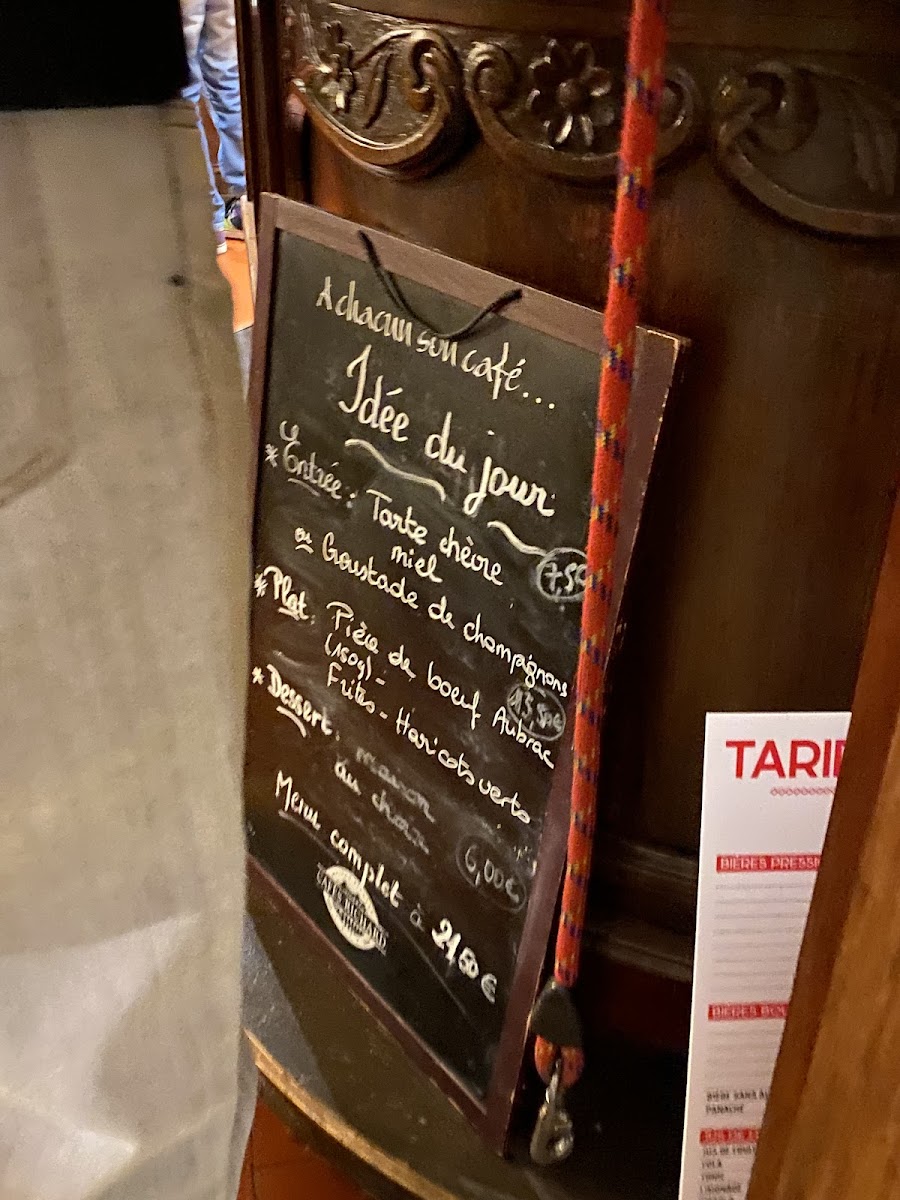 A chacun son café...
Idée du jour
* Entrée : Tarte chèvre
miel
7,50
ou Croustade de champignons
* Plat : Pièce de boeuf Aubrac
(150g) -
13,50€
Frites - Haricots verts
* Dessert : maison
au choix
6,00€
Menu complet à 21,50€
CAFÉS RICHARD
TARI
BIÈRES PRESSI
BIÈRES BOU
BIÈRE SANS AL
PANACHÉ
JUS DE
COLA
LIMONADE